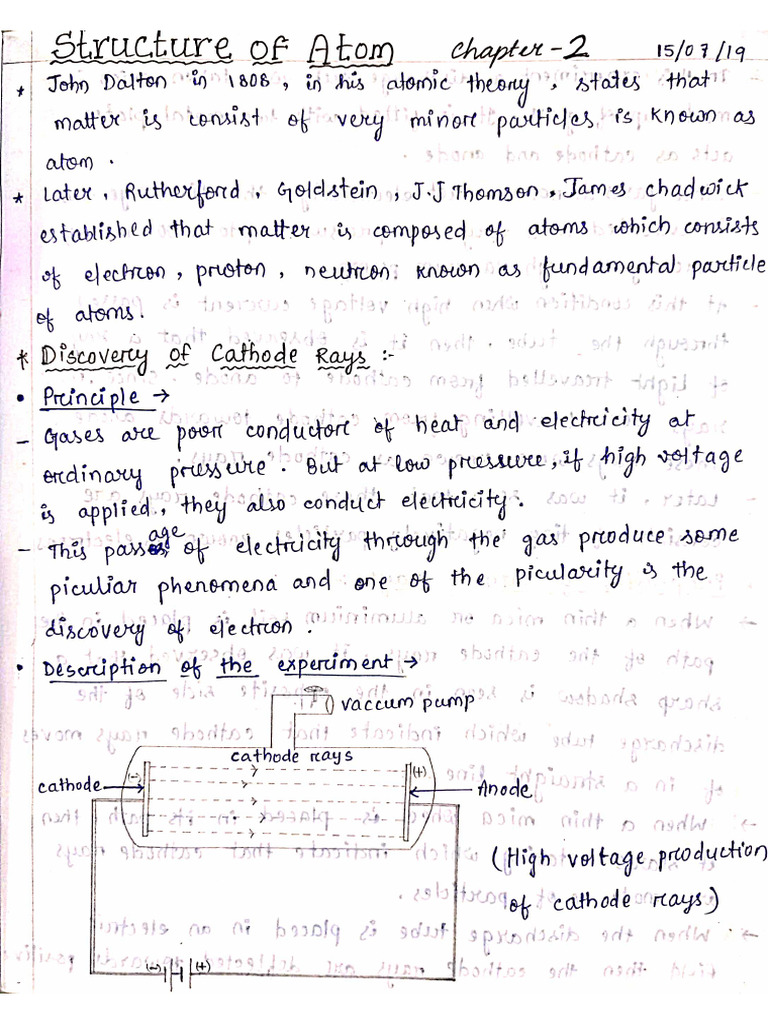 Structure of Atom Chapter-2 15/07/19
* John Dalton in 1808, in his atomic theory, states that
matter is consist of very minore particles is known as
atom.
* Later, Rutherford, Goldstein, J.J Thomson, James chadwick
established that matter is composed of atoms which consists
of electron, proton, neutron. known as fundamental particle
of atoms.
* Discovery of Cathode Rays :-
• Principle →
- Gases are poor conductore of heat and electricity at
ordinary pressure. But at low pressure, if high voltage
is applied, they also conduct electricity.
- This passage of electricity through the gas produce some
piculiar phenomena and one of the picularity is the
discovery of electron.
• Description of the experiment →
vaccum pump
cathode rays
(-) (+)
cathode Anode
(High voltage production
of cathode rays)
(-) (+)